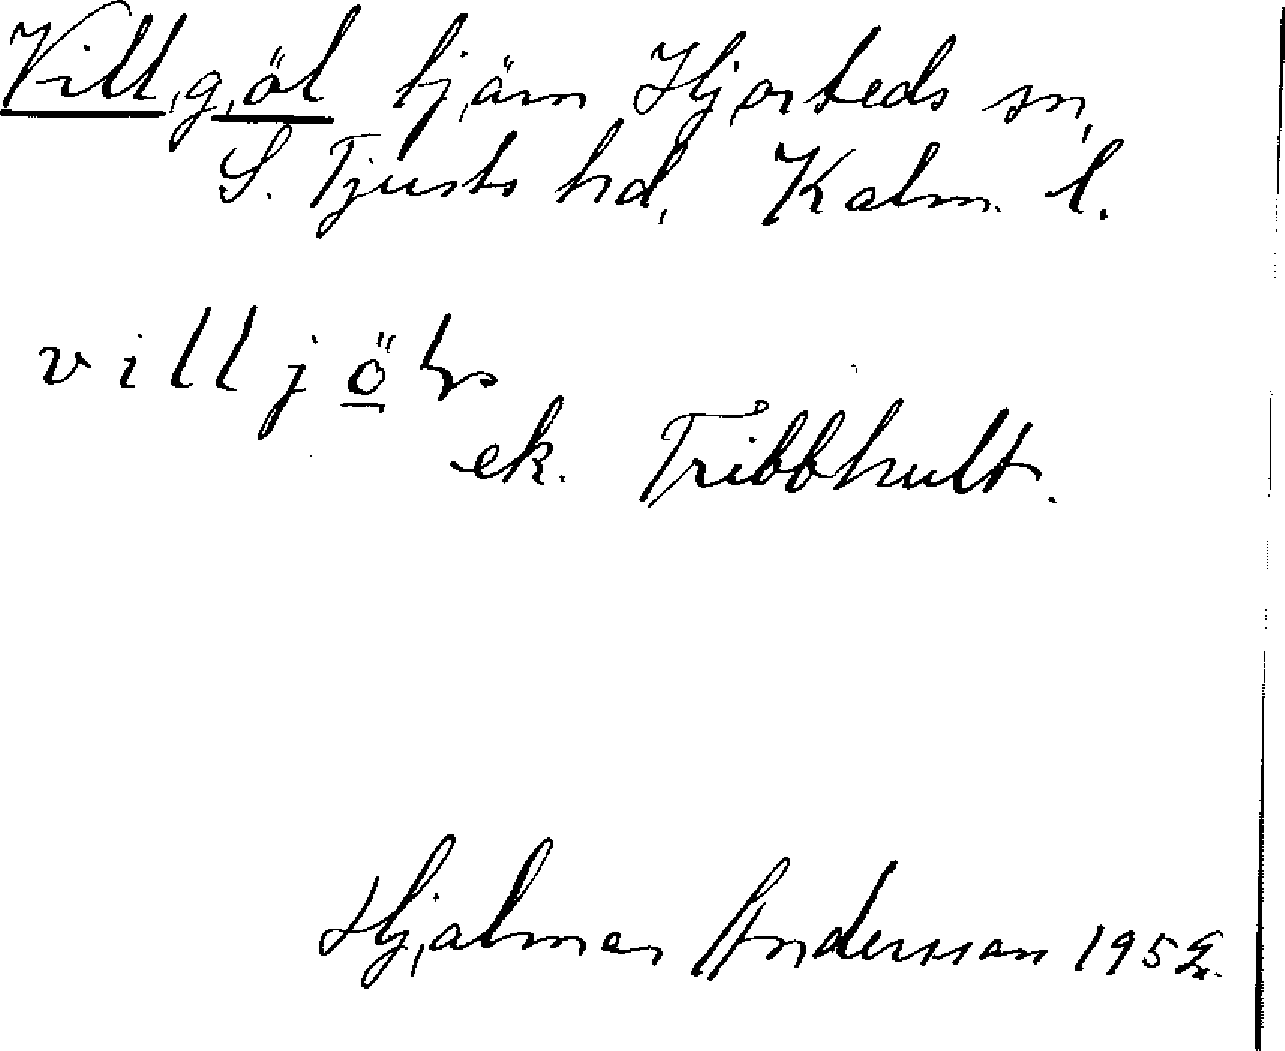 Villgöl tjärn Hjorteds sn,
S. Tjusts hd, Kalm. l.
villjöln
ek. Tribbhult.
Hjalmar Andersson 1952.